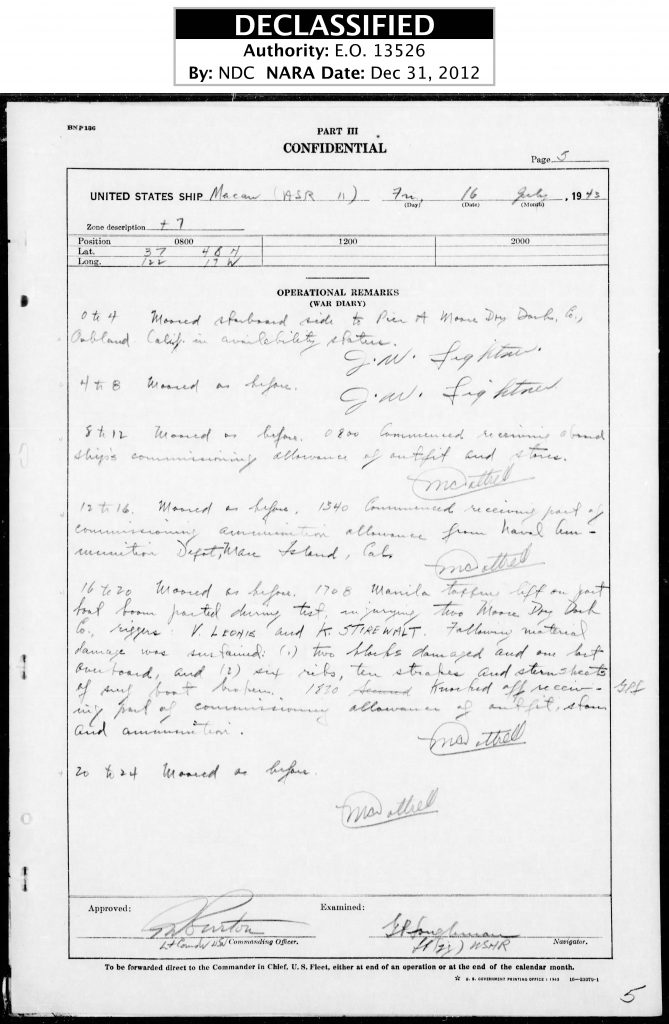 DECLASSIFIED
Authority: E.O. 13526
By: NDC NARA Date: Dec 31, 2012
BNP 186
PART III
CONFIDENTIAL
Page 5
UNITED STATES SHIP Macaw (ASR 11) Fri, 16 July, 1943
(Day) (Date) (Month)
Zone description +7
Position 0800 1200 2000
Lat. 37 48 N
Long. 122 17 W
OPERATIONAL REMARKS
(WAR DIARY)
0 to 4 Moored starboard side to Pier A Moore Dry Dock Co.,
Oakland Calif. in availability status.
J. W. Lightner.
4 to 8 Moored as before.
J. W. Lightner
8 to 12 Moored as before. 0800 Commenced receiving aboard
ship's commissioning allowance of outfit and stores.
12 to 16. Moored as before. 1340 Commenced receiving part of
commissioning ammunition allowance from Naval Am-
munition Depot, Mare Island, Cal.
16 to 20 Moored as before. 1708 Manila topping lift on port
boat boom parted during test, injurying two Moore Dry Dock
Co., riggers: V. LEONIS and K. STIREWALT. Following material
damage was sustained: (1) two blocks damaged and one lost
overboard, and (2) six ribs, ten strakes and stern sheets
of surf boat broken. 1830 Knocked off receiv-
ing part of commissioning allowance of outfit, stores
and ammunition.
20 to 24 Moored as before.
Approved:
Examined:
Lt Comdr USN Commanding Officer.
Lt (jg) USNR Navigator.
To be forwarded direct to the Commander in Chief, U. S. Fleet, either at end of an operation or at the end of the calendar month.
☆ U. S. GOVERNMENT PRINTING OFFICE : 1943
5